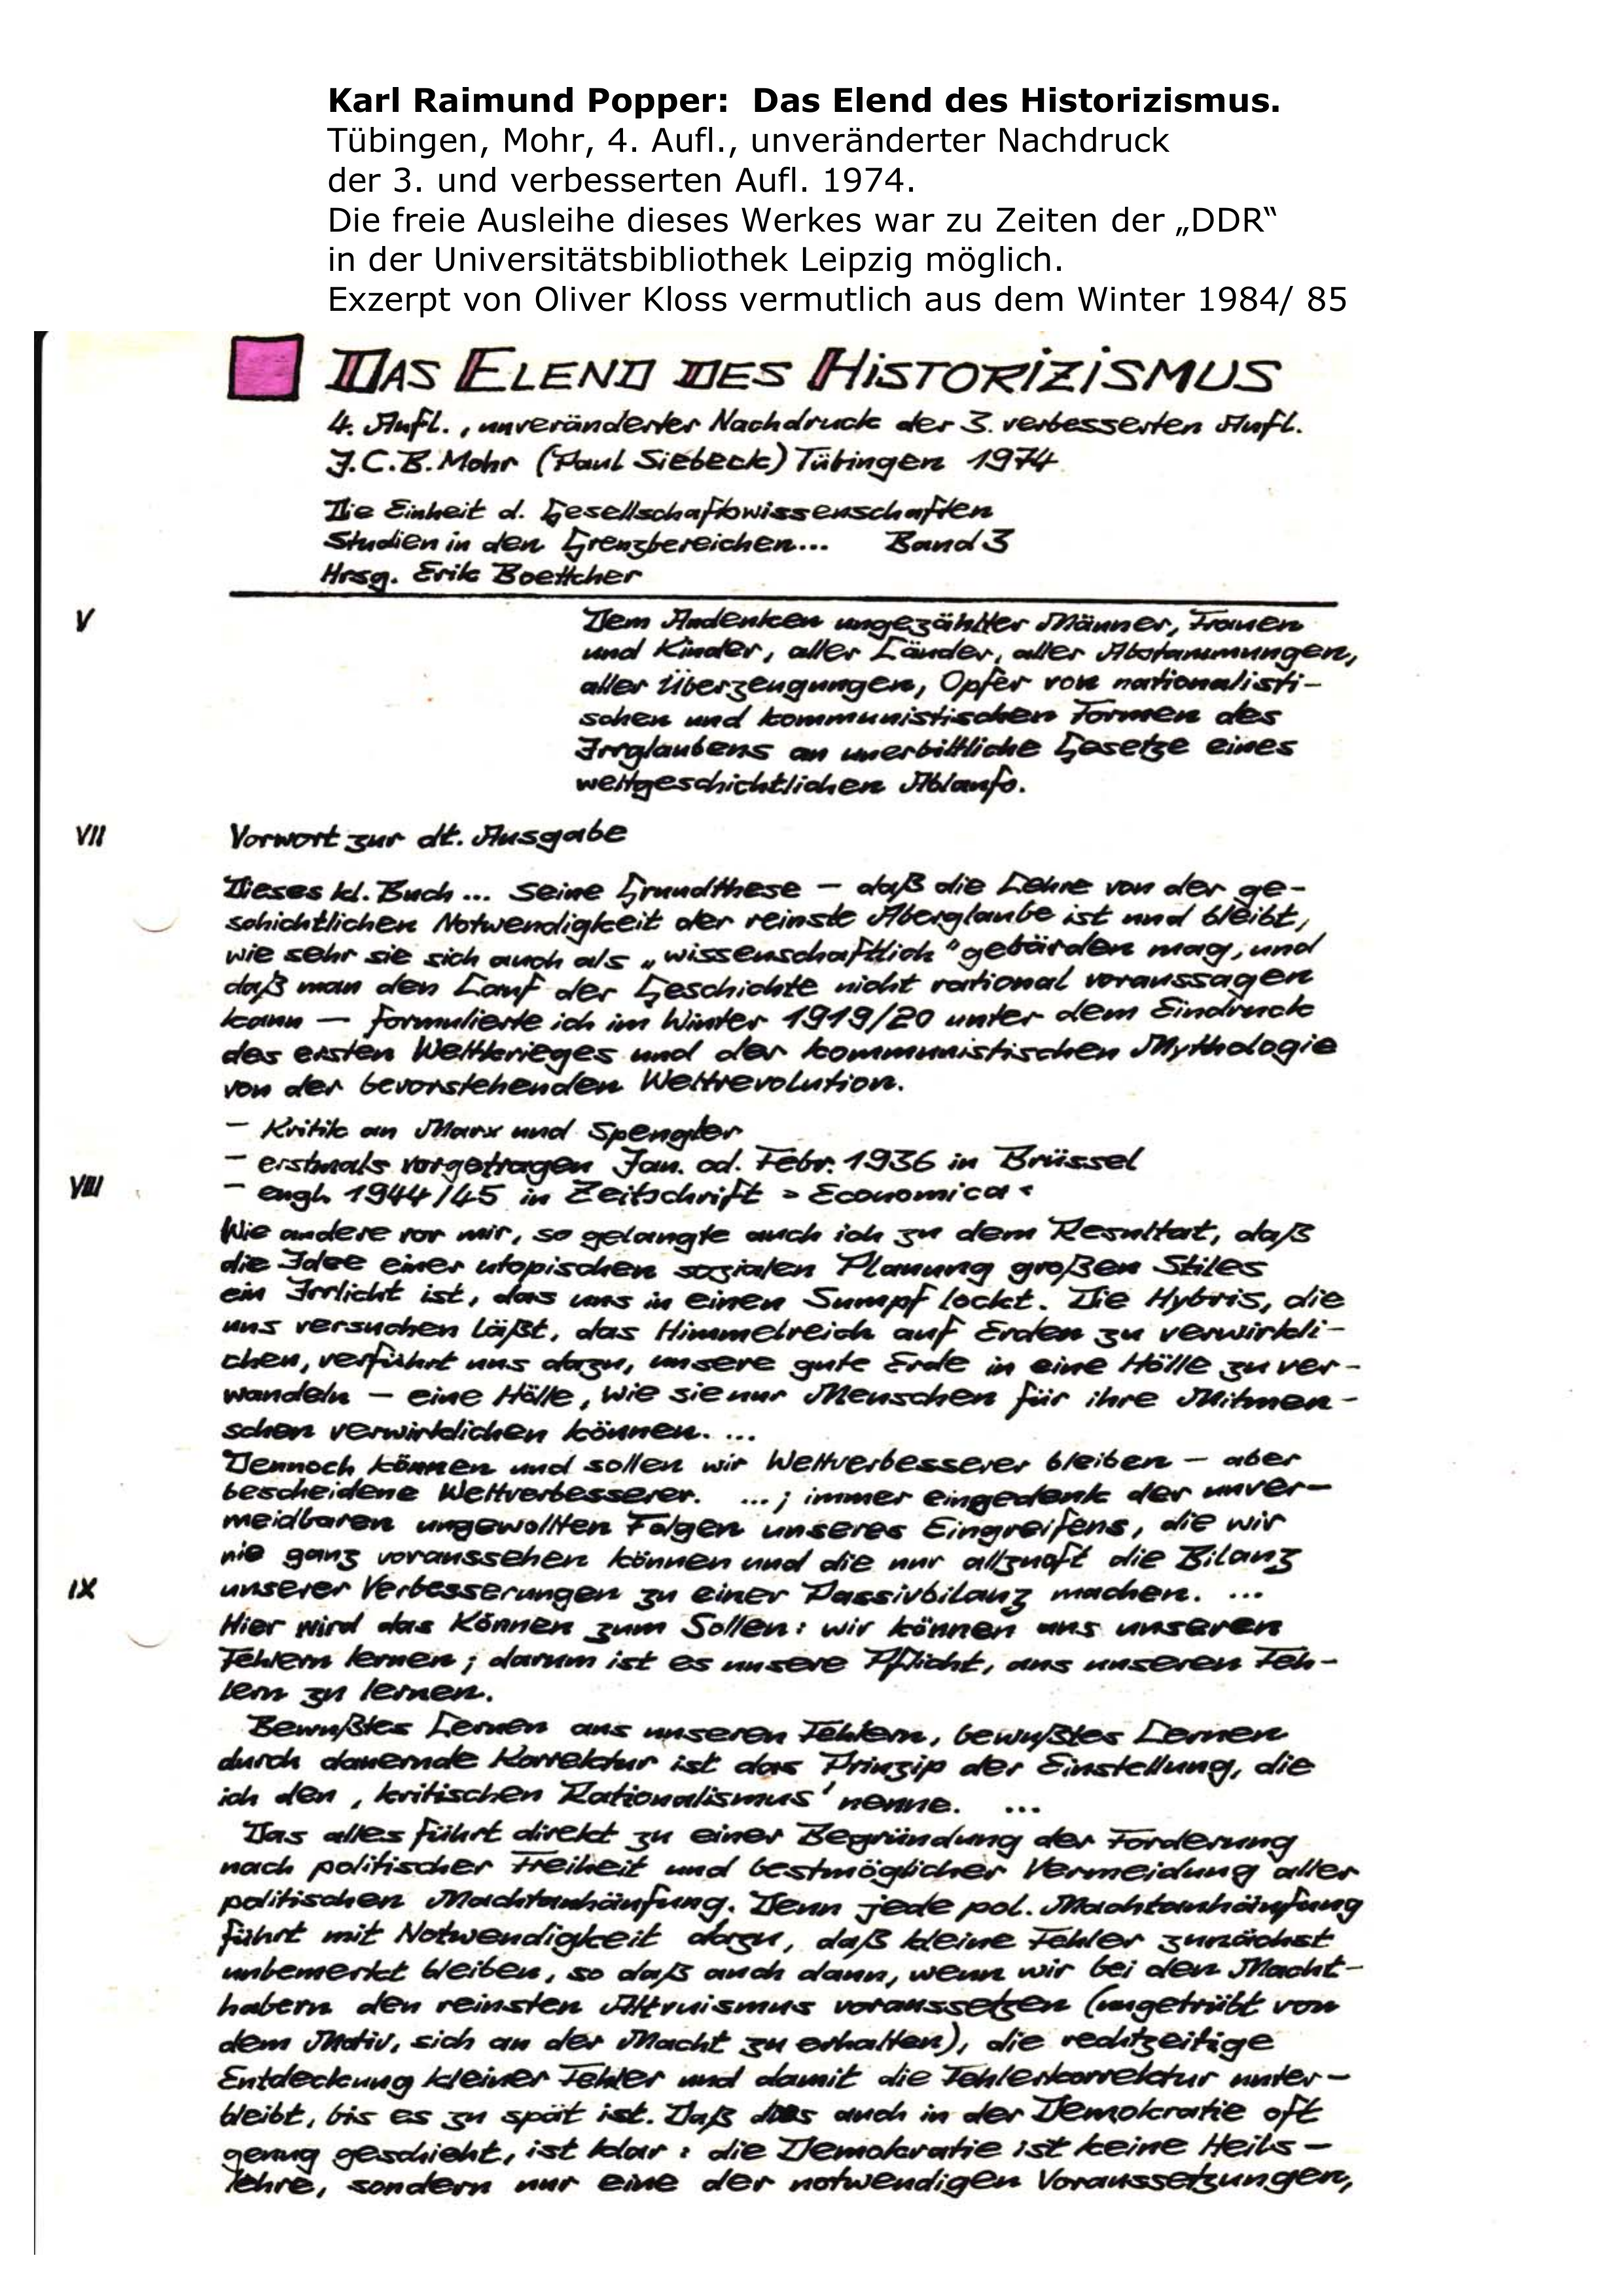 Karl Raimund Popper: Das Elend des Historizismus.
Tübingen, Mohr, 4. Aufl., unveränderter Nachdruck
der 3. und verbesserten Aufl. 1974.
Die freie Ausleihe dieses Werkes war zu Zeiten der „DDR“
in der Universitätsbibliothek Leipzig möglich.
Exzerpt von Oliver Kloss vermutlich aus dem Winter 1984/ 85
DAS ELEND DES HISTORIZISMUS
4. Aufl., unveränderter Nachdruck der 3. verbesserten Aufl.
J.C.B. Mohr (Paul Siebeck) Tübingen 1974
Die Einheit d. Gesellschaftswissenschaften
Studien in den Grenzbereichen... Band 3
Hrsg. Erik Boettcher
V Dem Andenken ungezählter Männer, Frauen
und Kinder, aller Länder, aller Abstammungen,
aller Überzeugungen, Opfer von nationalisti-
schen und kommunistischen Formen des
Irrglaubens an unerbittliche Gesetze eines
weltgeschichtlichen Ablaufs.
VII Vorwort zur dt. Ausgabe
Dieses kl. Buch ... seine Grundthese – daß die Lehre von der ge-
schichtlichen Notwendigkeit der reinste Aberglaube ist und bleibt,
wie sehr sie sich auch als „wissenschaftlich“ gebärden mag, und
daß man den Lauf der Geschichte nicht rational voraussagen
kann – formulierte ich im Winter 1919/20 unter dem Eindruck
des ersten Weltkrieges und der kommunistischen Mythologie
von der bevorstehenden Weltrevolution.
– Kritik an Marx und Spengler
– erstmals vorgetragen Jan. od. Febr. 1936 in Brüssel
VIII – engl. 1944/45 in Zeitschrift >Economica<
Wie andere vor mir, so gelangte auch ich zu dem Resultat, daß
die Idee einer utopischen sozialen Planung großen Stiles
ein Irrlicht ist, das uns in einen Sumpf lockt. Die Hybris, die
uns versuchen läßt, das Himmelreich auf Erden zu verwirkli-
chen, verführt uns dazu, unsere gute Erde in eine Hölle zu ver-
wandeln – eine Hölle, wie sie nur Menschen für ihre Mitmen-
schen verwirklichen können. ...
Dennoch können und sollen wir Weltverbesserer bleiben – aber
bescheidene Weltverbesserer. ...; immer eingedenk der unver-
meidbaren ungewollten Folgen unseres Eingreifens, die wir
nie ganz voraussehen können und die nur allzuoft die Bilanz
IX unserer Verbesserungen zu einer Passivbilanz machen. ...
Hier wird das Können zum Sollen: wir können aus unseren
Fehlern lernen; darum ist es unsere Pflicht, aus unseren Feh-
lern zu lernen.
Bewußtes Lernen aus unseren Fehlern, bewußtes Lernen
durch dauernde Korrektur ist das Prinzip der Einstellung, die
ich den ‚kritischen Rationalismus' nenne. ...
Das alles führt direkt zu einer Begründung der Forderung
nach politischer Freiheit und bestmöglicher Vermeidung aller
politischen Machtanhäufung. Denn jede pol. Machtanhäufung
führt mit Notwendigkeit dazu, daß kleine Fehler zunächst
unbemerkt bleiben, so daß auch dann, wenn wir bei den Macht-
habern den reinsten Altruismus voraussetzen (ungetrübt von
dem Motiv, sich an der Macht zu erhalten), die rechtzeitige
Entdeckung kleiner Fehler und damit die Fehlerkorrektur unter-
bleibt, bis es zu spät ist. Daß dies auch in der Demokratie oft
genug geschieht, ist klar: die Demokratie ist keine Heils-
lehre, sondern nur eine der notwendigen Voraussetzungen,